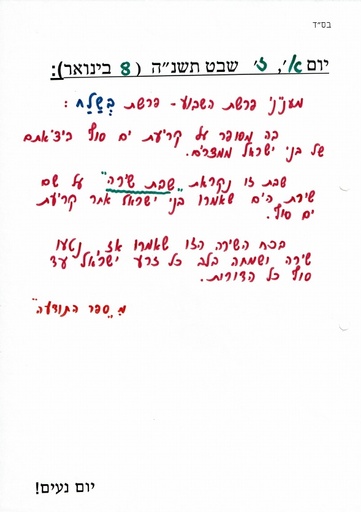 בס״ד
יום א׳, ז׳ שבט תשנ״ה (8 בינואר):
מענ״ני פרשת השבוע - פרשת בְּשַׁלַּח :
בה מסופר על קריעת ים סוף ביציאתם
של בני ישראל ממצרים.
שבת זו נקראת "שבת שירה" על שם
שירת הים שאמרו בני ישראל אחר קריעת
ים סוף.
בכח השירה הזו שאמרו אז, נטעו
שירה ושמחה בלב כל זרע ישראל עד
סוף כל הדורות.
מִ"ספר התודעה"
יום נעים!